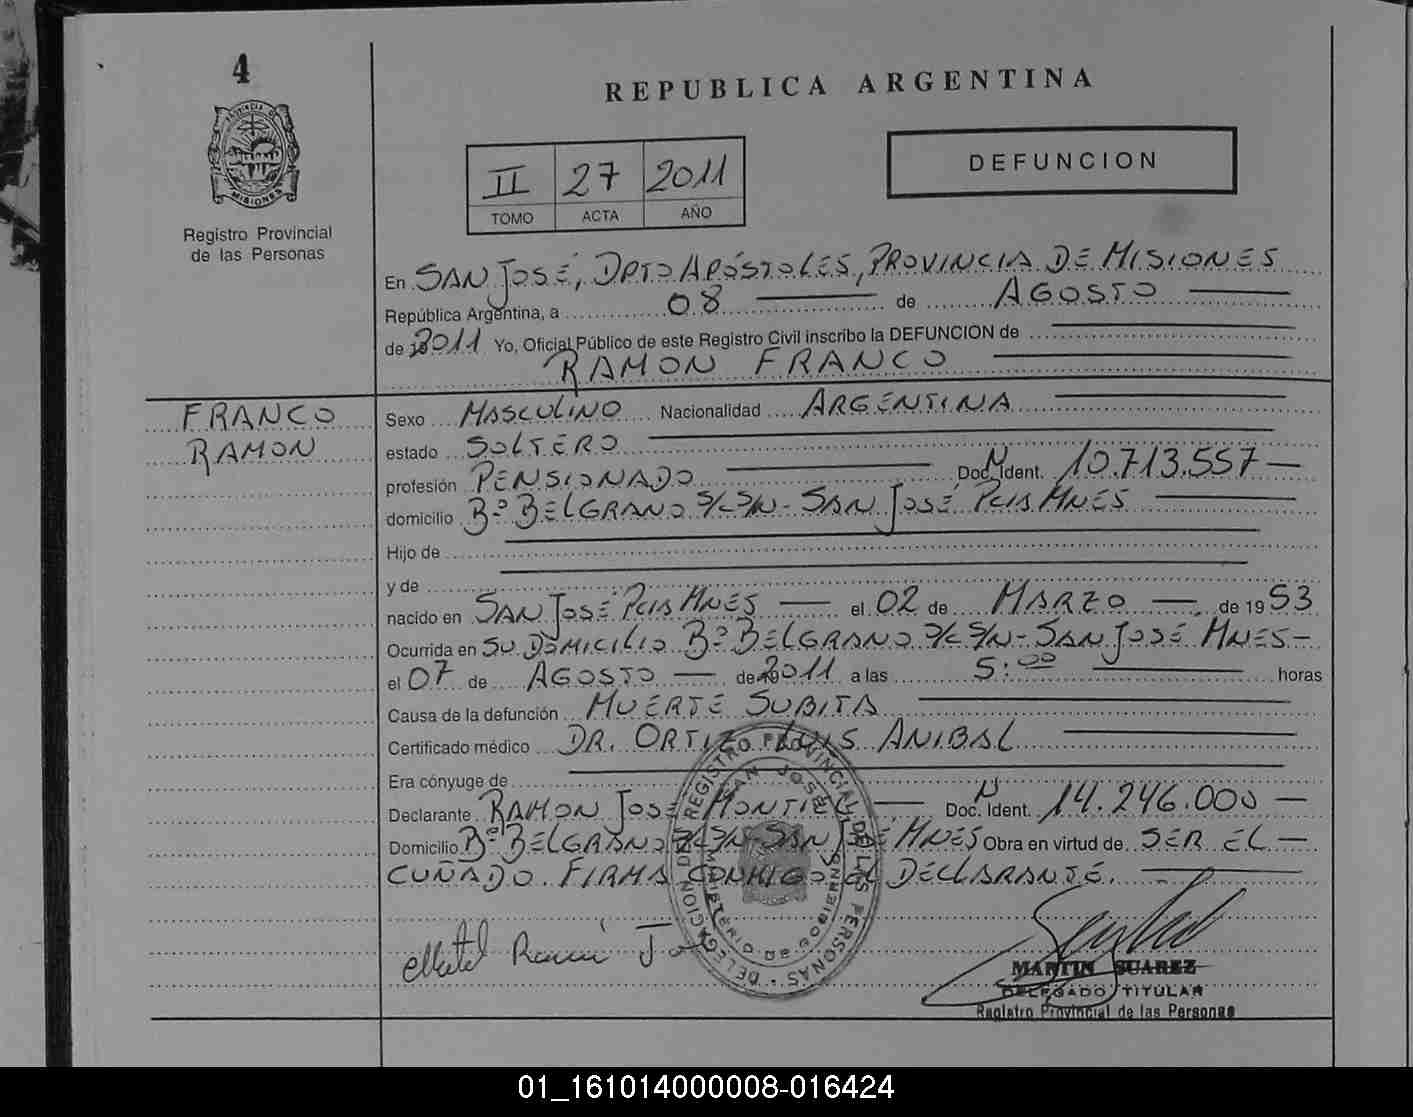 4
REPUBLICA ARGENTINA
PROVINCIA DE MISIONES
Registro Provincial
de las Personas
II 27 2011
TOMO ACTA AÑO
DEFUNCION
En SAN JOSÉ, DPTO APÓSTOLES, PROVINCIA DE MISIONES
República Argentina, a 08 de AGOSTO
de 2011 Yo, Oficial Público de este Registro Civil inscribo la DEFUNCION de
RAMON FRANCO
FRANCO
RAMON
Sexo MASCULINO Nacionalidad ARGENTINA
estado SOLTERO
profesión PENSIONADO Doc. N Ident. 10.713.557
domicilio Bº BELGRANO S/C S/N - SAN JOSÉ PCIA MNES
Hijo de
y de
nacido en SAN JOSÉ PCIA MNES el 02 de MARZO de 1953
Ocurrida en SU DOMICILIO Bº BELGRANO S/C S/N - SAN JOSÉ MNES -
el 07 de AGOSTO de 2011 a las 5:00 horas
Causa de la defunción MUERTE SUBITA
Certificado médico DR. ORTIZ LUIS ANIBAL
Era cónyuge de
Declarante RAMON JOSE MONTIEL Doc. N Ident. 14.246.000
Domicilio Bº BELGRANO S/C S/N SAN JOSE MNES Obra en virtud de SER EL
CUÑADO. FIRMA CONMIGO EL DECLARANTE.
REGISTRO PROVINCIAL DE LAS PERSONAS · DELEGACION
SAN JOSÉ
MINISTERIO DE GOBIERNO
MARTIN SUAREZ
DELEGADO TITULAR
Registro Provincial de las Personas
01_161014000008-016424